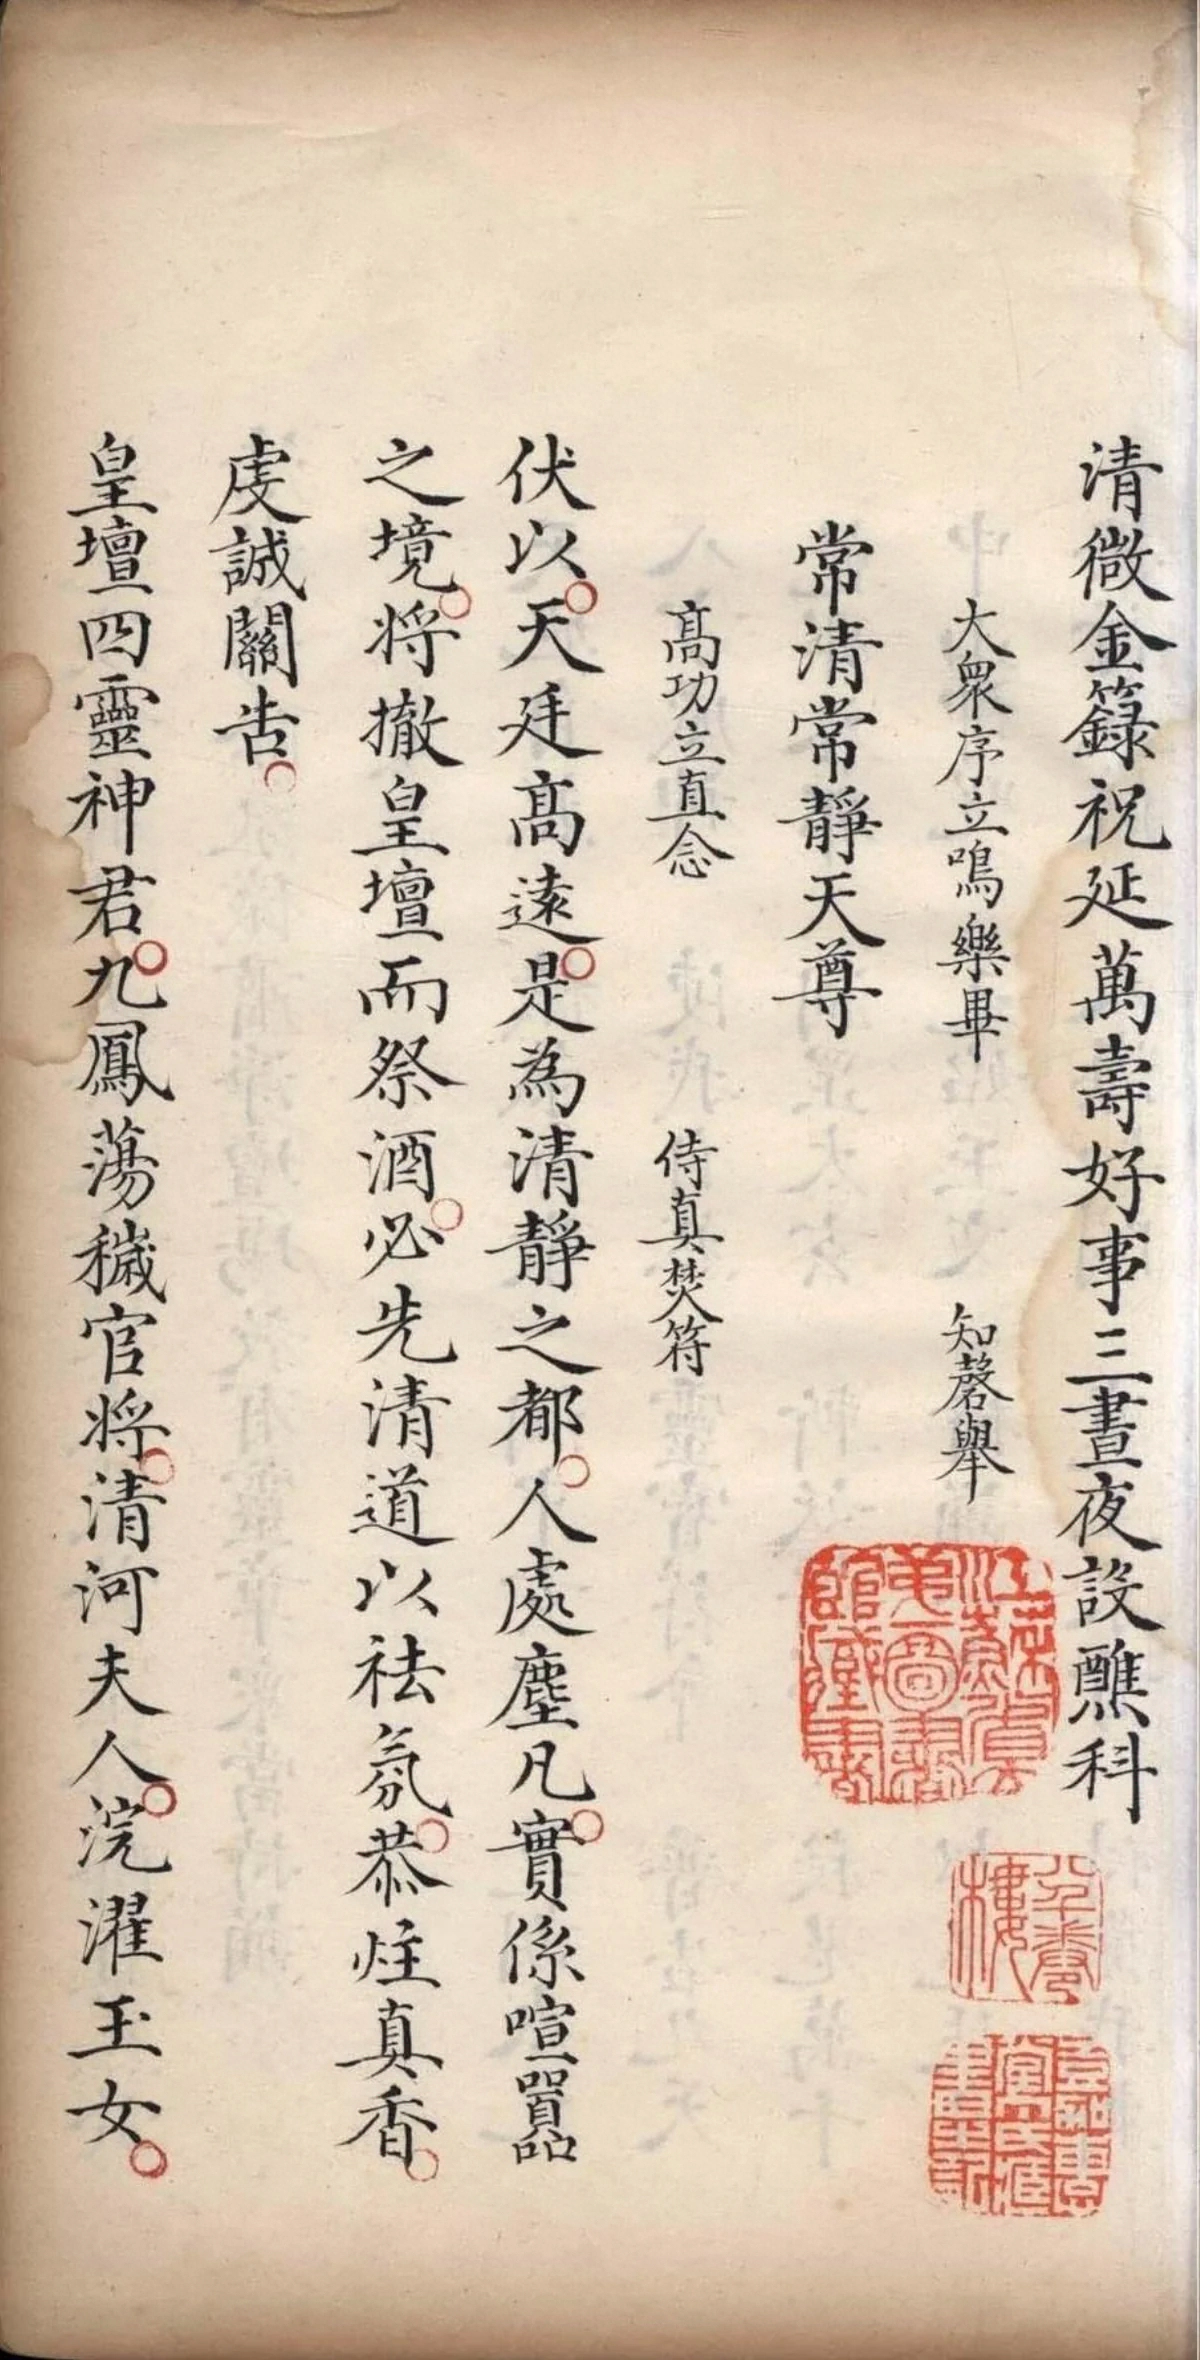 清微金籙祝延萬壽好事三晝夜設醮科
大衆序立鳴樂畢 知磬舉
常清常靜天尊
髙功立直念 侍真焚符
伏以。天廷髙遠。是為清靜之都。人處塵凡。實係喧囂
之境。將撤皇壇而祭酒。必先清道以祛氛。恭炷真香。
虔誠關告。
皇壇四靈神君。九鳳蕩穢官將。清河夫人。浣濯玉女。
江蘇省立第一圖書館藏書
八千卷樓